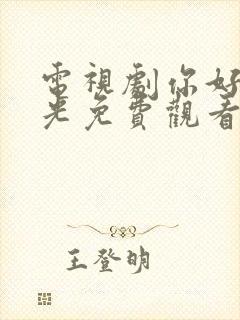 電視劇你好
光免費觀看
王登明